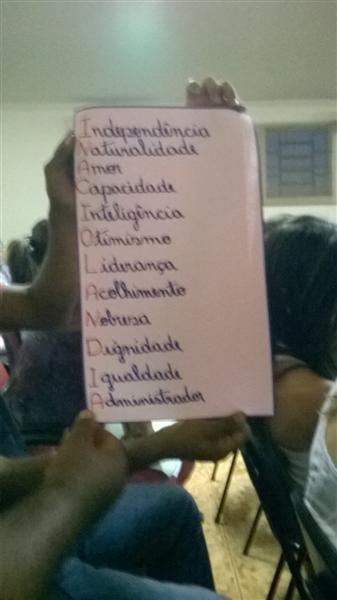 Independência
Naturalidade
Amor
Capacidade
Inteligência
Otimismo
Liderança
Acolhimento
Nobresa
Dignidade
Igualdade
Administrador